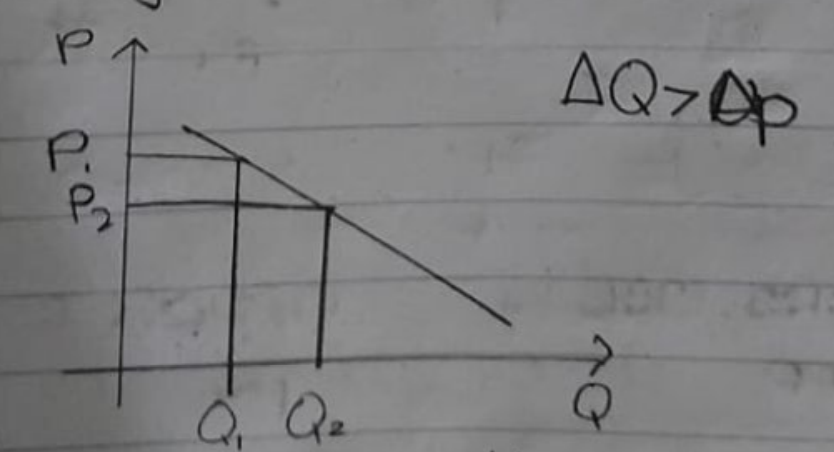 P
ΔQ > Δp
P₁
P₂
Q₁ Q₂ Q